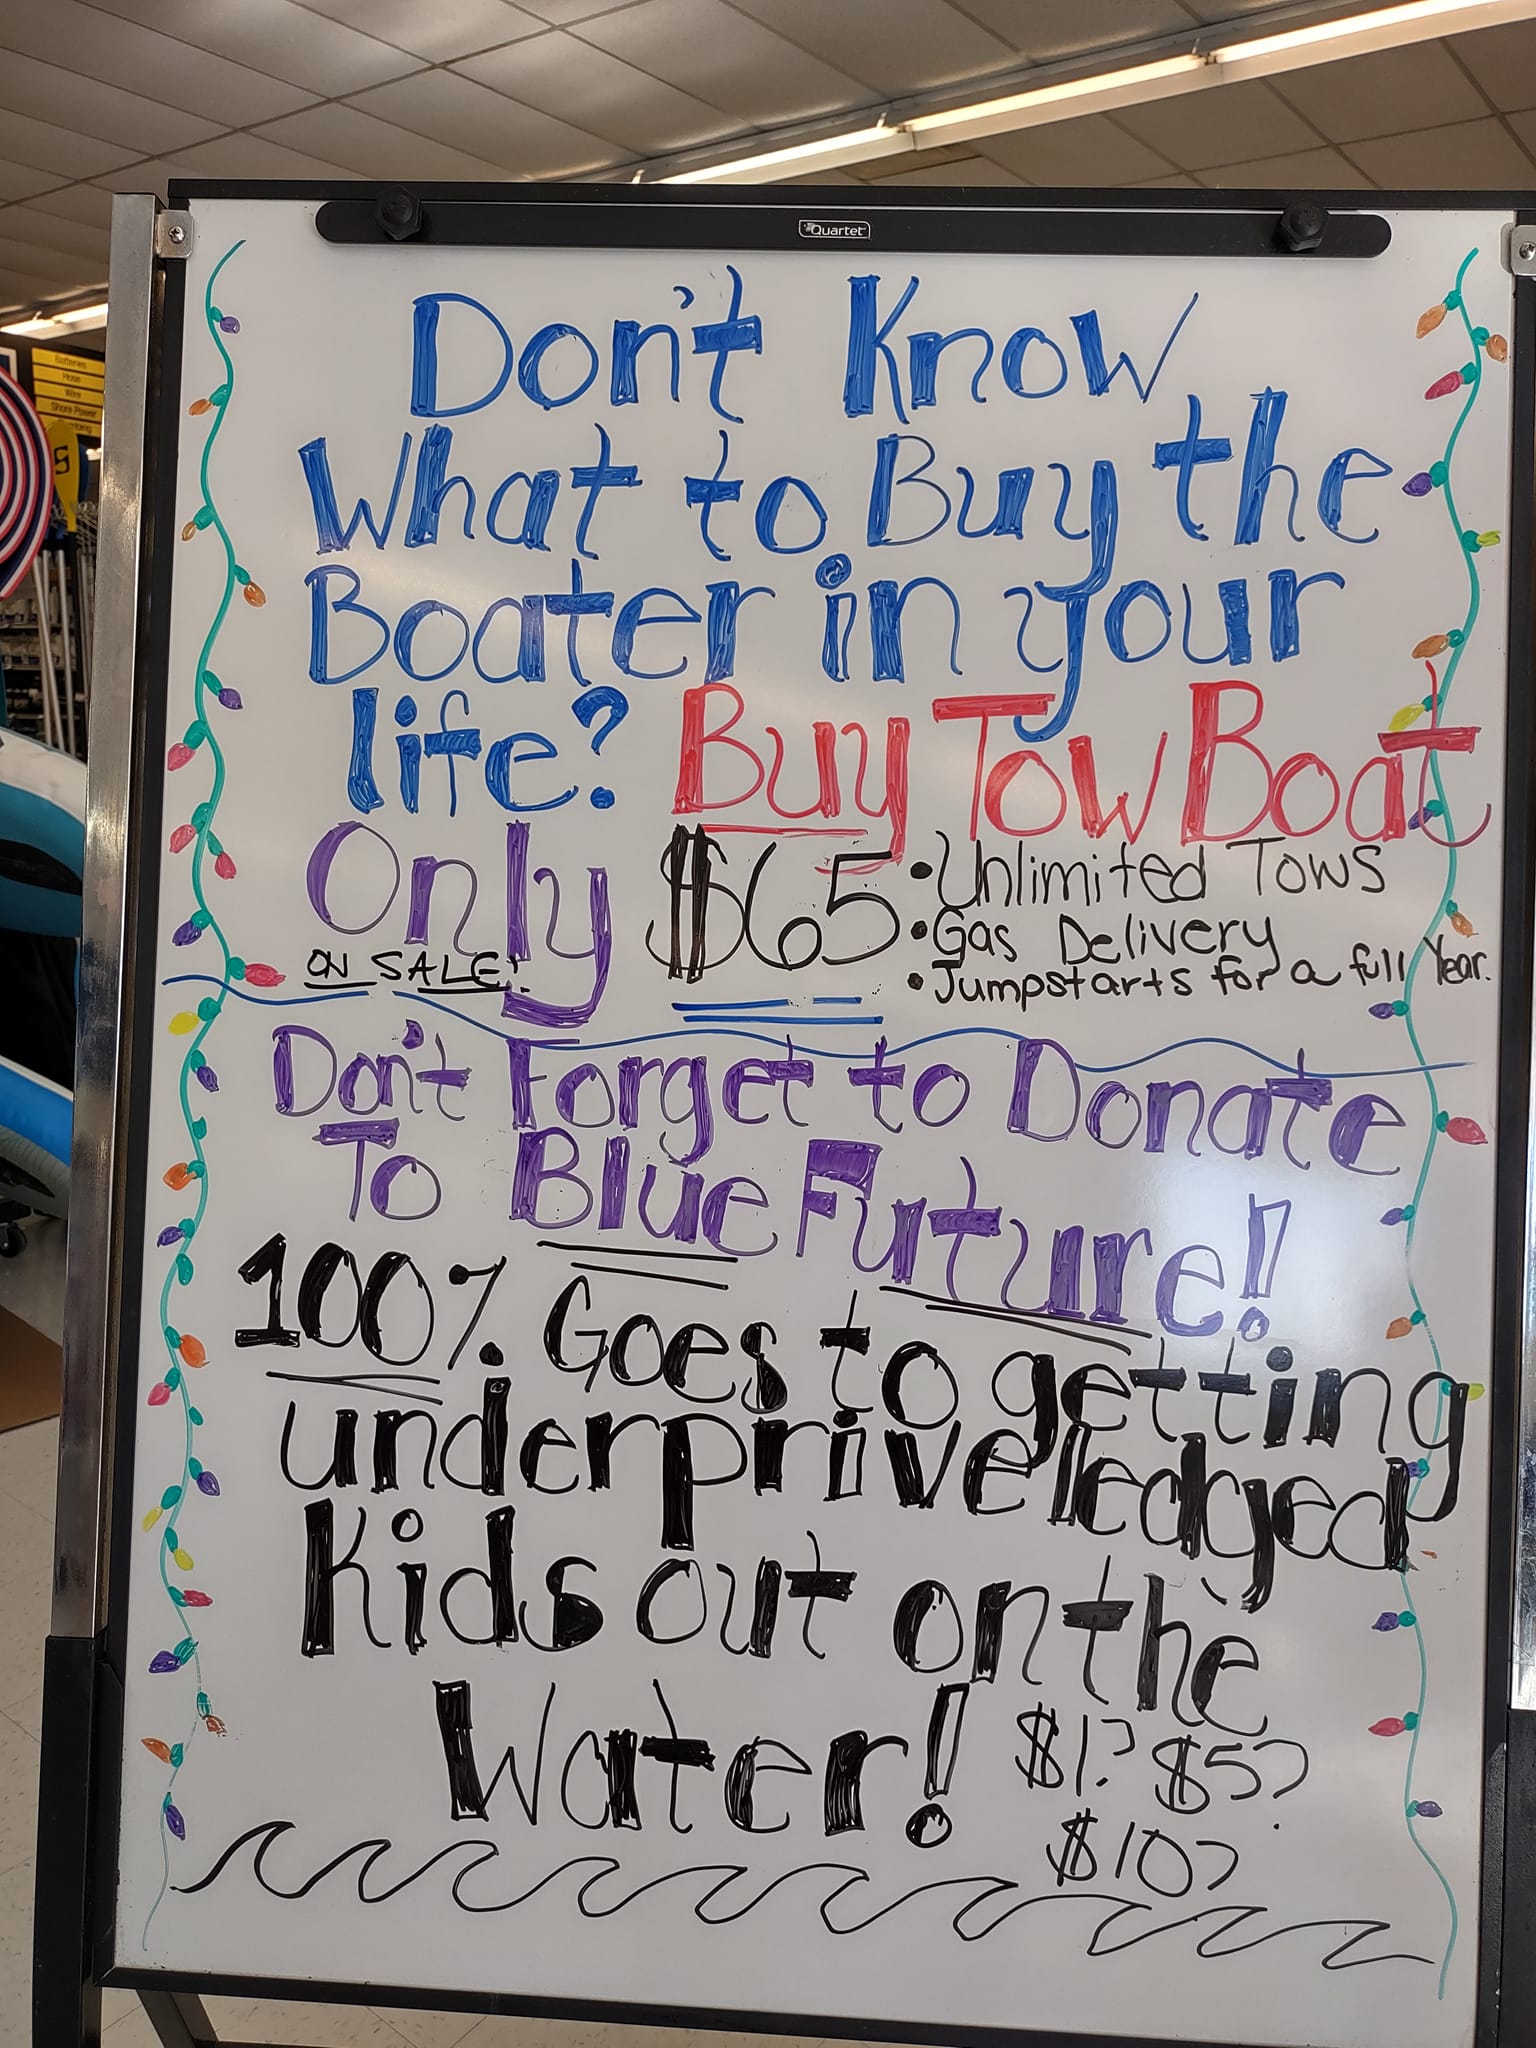 Quartet
Don't Know
What to Buy the
Boater in your
life? Buy Tow Boat
Only $65
ON SALE!
• Unlimited Tows
• Gas Delivery
• Jumpstarts for a full Year.
Don't Forget to Donate
To Blue Future!
100% Goes to getting
underpriveledged
Kids out on the
Water!
$1? $5?
$10?
Batteries
Hose
Wire
Shore Power
S